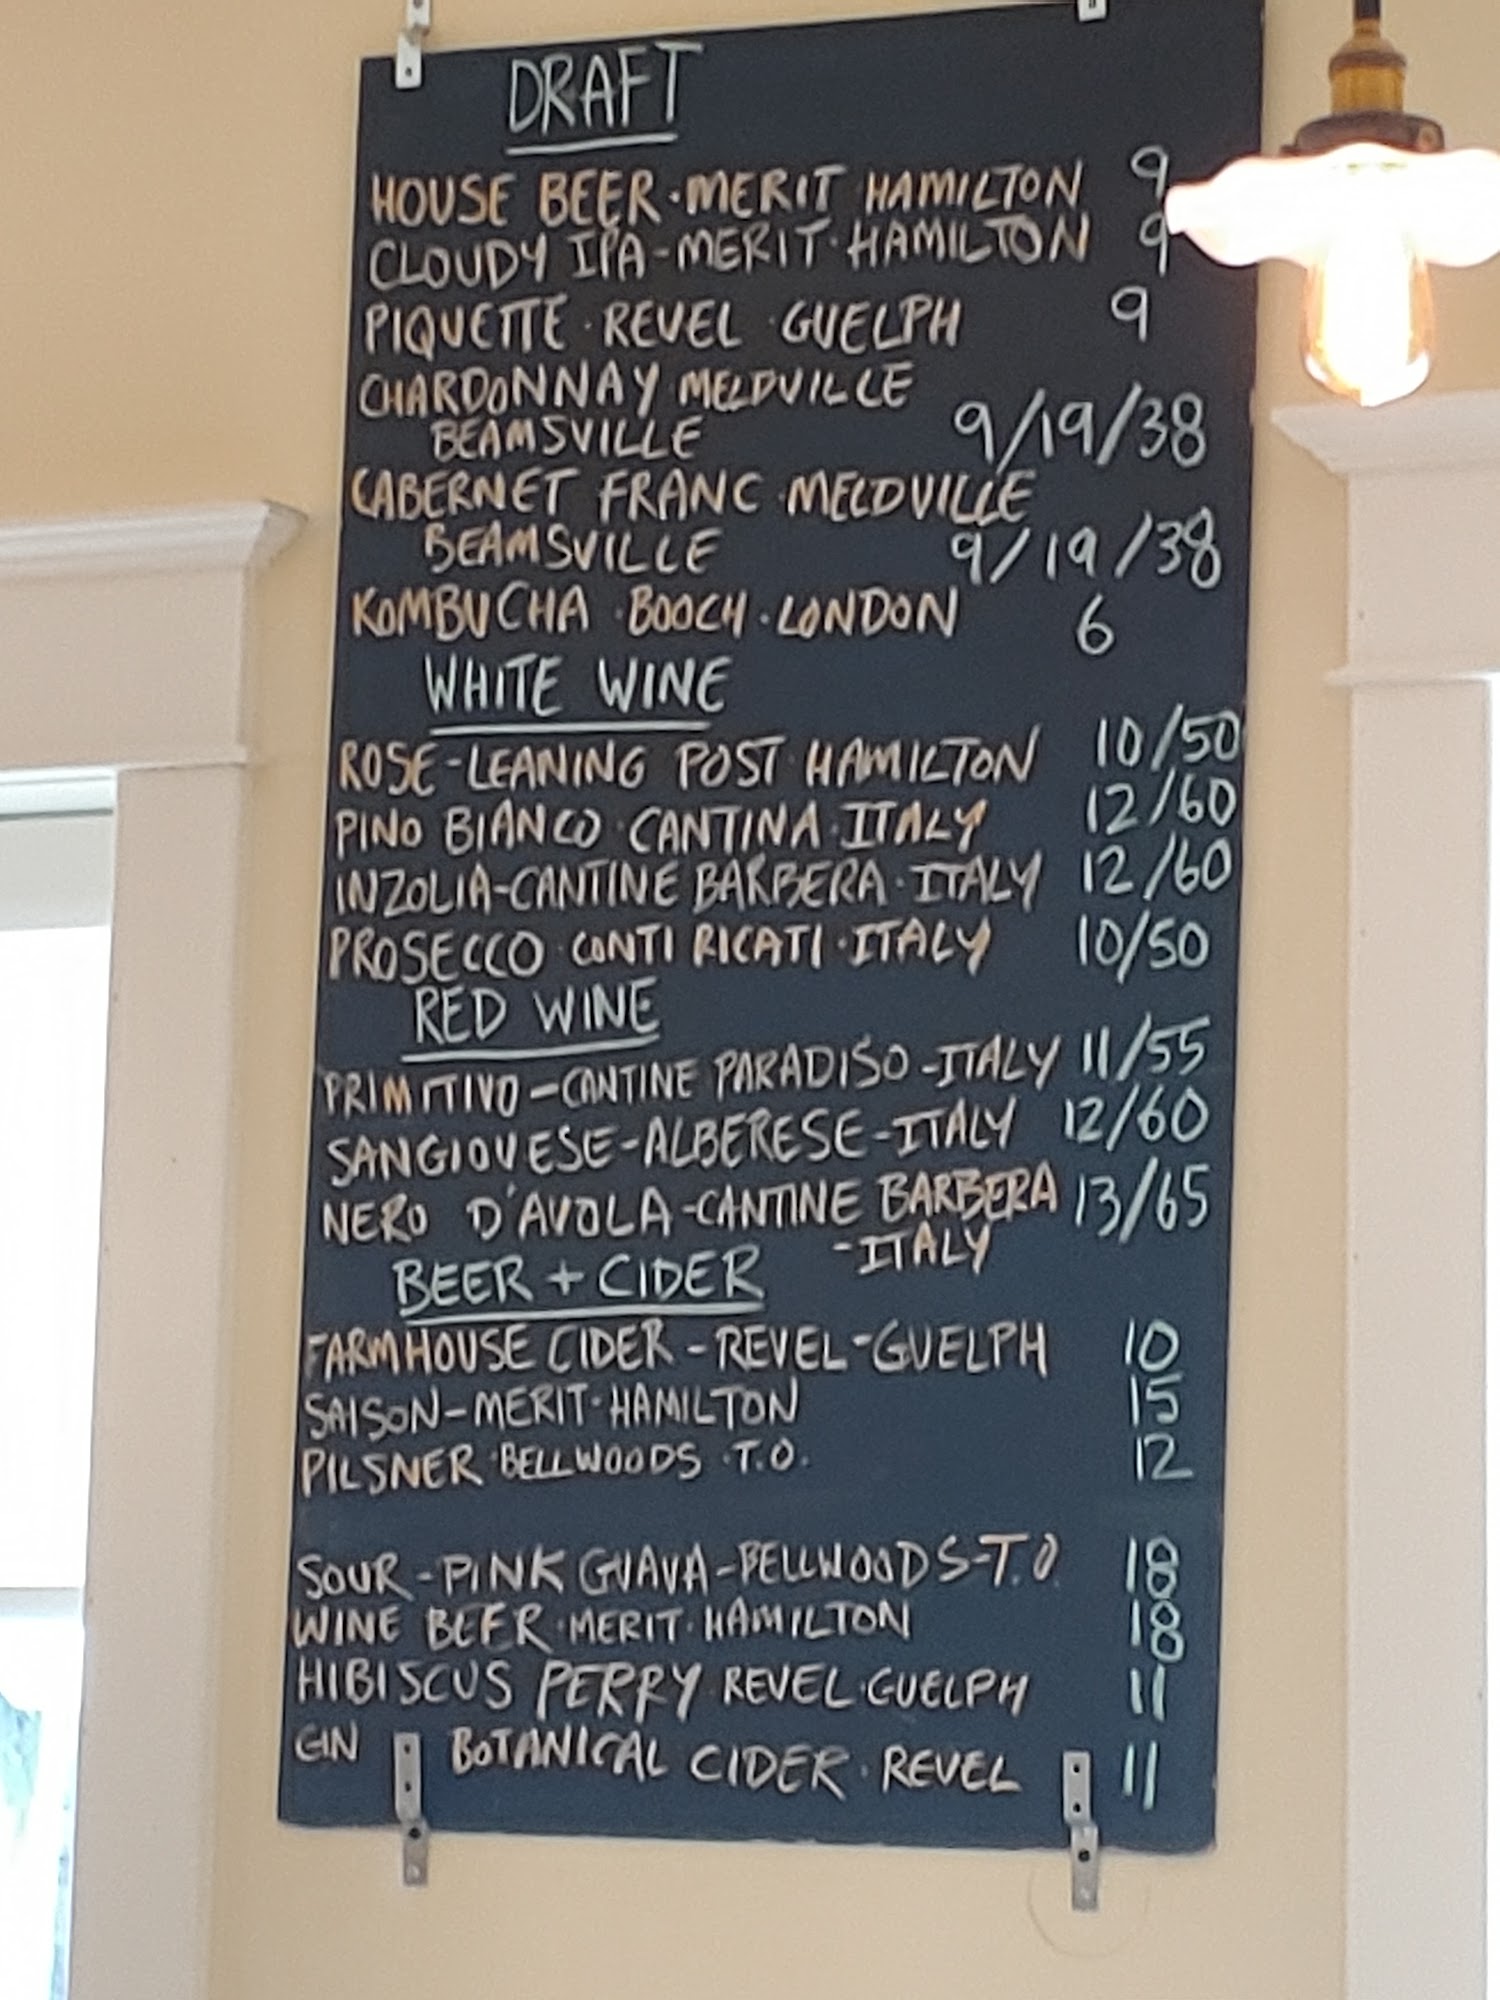 DRAFT
HOUSE BEER·MERIT HAMILTON 9
CLOUDY IPA-MERIT·HAMILTON 9
PIQUETTE·REVEL·GUELPH 9
CHARDONNAY MELDVILLE
BEAMSVILLE 9/19/38
CABERNET FRANC·MELDVILLE
BEAMSVILLE 9/19/38
KOMBUCHA·BOOCH·LONDON 6
WHITE WINE
ROSE-LEANING POST·HAMILTON 10/50
PINO BIANCO·CANTINA·ITALY 12/60
INZOLIA-CANTINE BARBERA·ITALY 12/60
PROSECCO·CONTI RICATI·ITALY 10/50
RED WINE
PRIMITIVO-CANTINE PARADISO-ITALY 11/55
SANGIOVESE-ALBERESE-ITALY 12/60
NERO D'AVOLA-CANTINE BARBERA 13/65
-ITALY
BEER + CIDER
FARMHOUSE CIDER-REVEL-GUELPH 10
SAISON-MERIT·HAMILTON 15
PILSNER·BELLWOODS·T.O. 12
SOUR-PINK GUAVA-BELLWOODS-T.O. 18
WINE BEER·MERIT·HAMILTON 18
HIBISCUS PERRY·REVEL·GUELPH 11
GIN BOTANICAL CIDER·REVEL 11